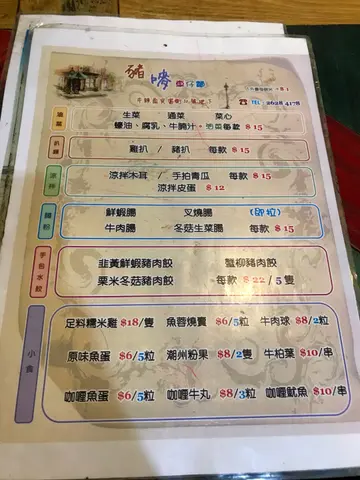 豬嘜車仔麵
TEL: 2628 4178
油菜
生菜 通菜 菜心
蠔油、腐乳、牛腩汁。芭菜每款 $15
扒類
雞扒 / 豬扒 每款 $15
涼拌
涼拌木耳 / 手拍青瓜 每款 $15
涼拌皮蛋 $12
腸粉
鮮蝦腸 叉燒腸 (即拉)
牛肉腸 冬菇生菜腸 每款 $15
手包水餃
韭黃鮮蝦豬肉餃 蟹柳豬肉餃
粟米冬菇豬肉餃 每款 $22/5隻
小食
足料糯米雞 $18/隻 魚蓉燒賣 $6/5粒 牛肉球 $8/2粒
原味魚蛋 $6/5粒 潮州粉果 $8/2隻 牛柏葉 $10/串
咖喱魚蛋 $6/5粒 咖喱牛丸 $8/3粒 咖喱魷魚 $10/串